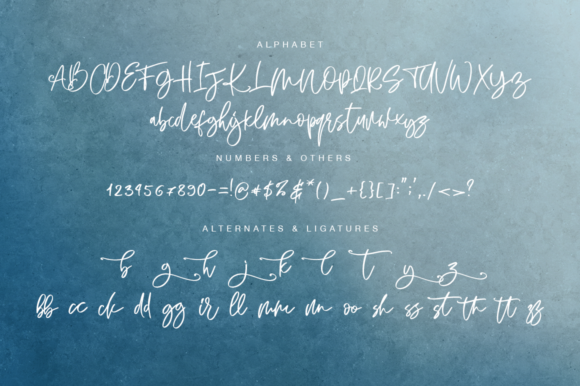 ALPHABET
ABCDEFGHIJKLMNOPQRSTUVWXYZ
abcdefghijklmnopqrstuvwxyz
NUMBERS & OTHERS
1234567890-=!@#$%&*()_+{}[]:";',./<>?
ALTERNATES & LIGATURES
b g h j k l t y z
bb cc ck dd gg ir ll mm nn oo sh ss st th tt zz